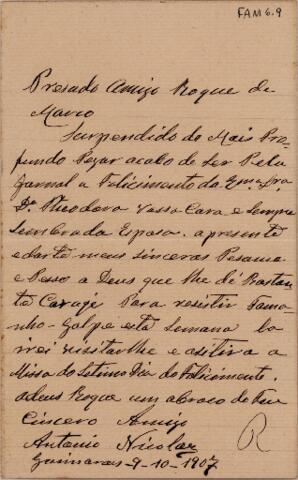 FAM 6.9
Presado Amigo Roque de
Marco
Surpendido do Mais Pro-
fundo Pezar acabo de Ler Pelo
Jornal o Falicimento da Exma Sra
Da Theodora Vossa Cara e Sempre
Lembrada Esposa. apresento
e darte meus sinceros Pesame
e Pesso a Deus que lhe dê Bastan
te Coragi Para resistir Tama-
nho-Golpe esta Semana la
irei visitarlhe e asistira a
Missa do Setimo Dia do Falicimento.
adeus Roque um abraço do Seu
Cincero Amigo
Antonio Nicolar
Guimaraes-9-10-1907
R